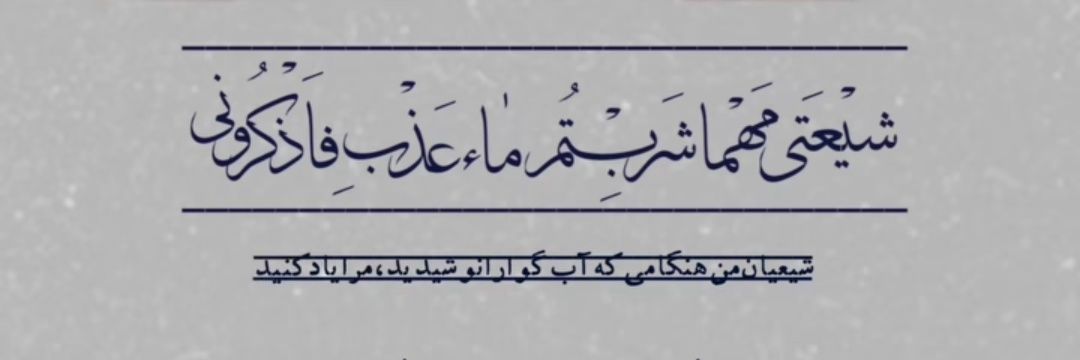 شیْعَتی مَهْما شَرِبْتُم ماءَ عَذْبِ فَاذْکُرُونی
شیعیان من هنگامی که آب گوارا نوشیدید، مرا یاد کنید